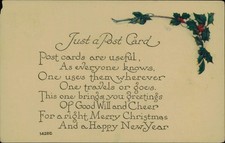 Just a Post Card
Post cards are useful,
As everyone knows,
One uses them wherever
One travels or goes.
This one brings you greetings
Of Good Will and Cheer
For a right Merry Christmas
And a Happy New Year